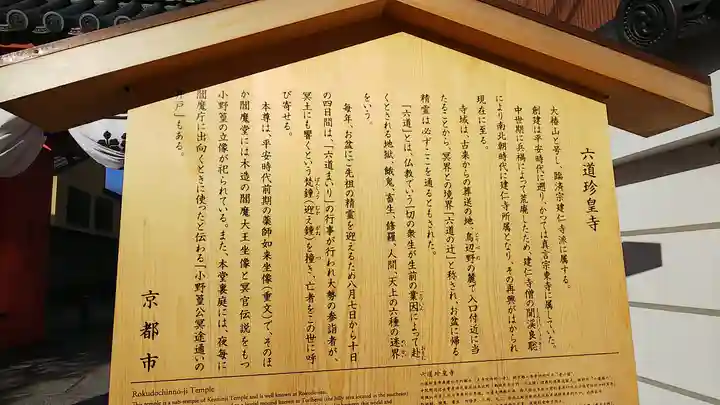 六道珍皇寺
大椿山と号し、臨済宗建仁寺派に属する。
創建は平安時代に遡り、かつては真言宗東寺に属していた。
中世期に兵禍によって荒廃したため、建仁寺僧の聞溪良聰
により南北朝時代に建仁寺所属となり、その再興がはかられ
現在に至る。
寺域は、古来からの葬送の地、鳥辺野の麓で入口付近に当
たることから、冥界との境界「六道の辻」と称され、お盆に帰る
精霊は必ずここを通るともされた。
「六道」とは、仏教でいう一切の衆生が生前の業因によって赴
くとされる地獄、餓鬼、畜生、修羅、人間、天上の六種の迷界
をいう。
毎年、お盆にご先祖の精霊を迎えるため八月七日から十日
の四日間は、「六道まいり」の行事が行われ大勢の参詣者が、
冥土にも響くという梵鐘(迎え鐘)を撞き、亡者をこの世に呼
び寄せる。
本尊は、平安時代前期の薬師如来坐像(重文)で、そのほ
か閻魔堂には木造の閻魔大王坐像と冥官伝説をもつ
小野篁の立像が祀られている。また、本堂裏庭には、夜毎に
閻魔庁に出向くときに使ったと伝わる「小野篁公冥途通いの
井戸」もある。
京都市
Rokudochinno-ji Temple
This temple is a sub-temple of Kenninji Temple and is well known as Rokudo-san.
六道珍皇寺